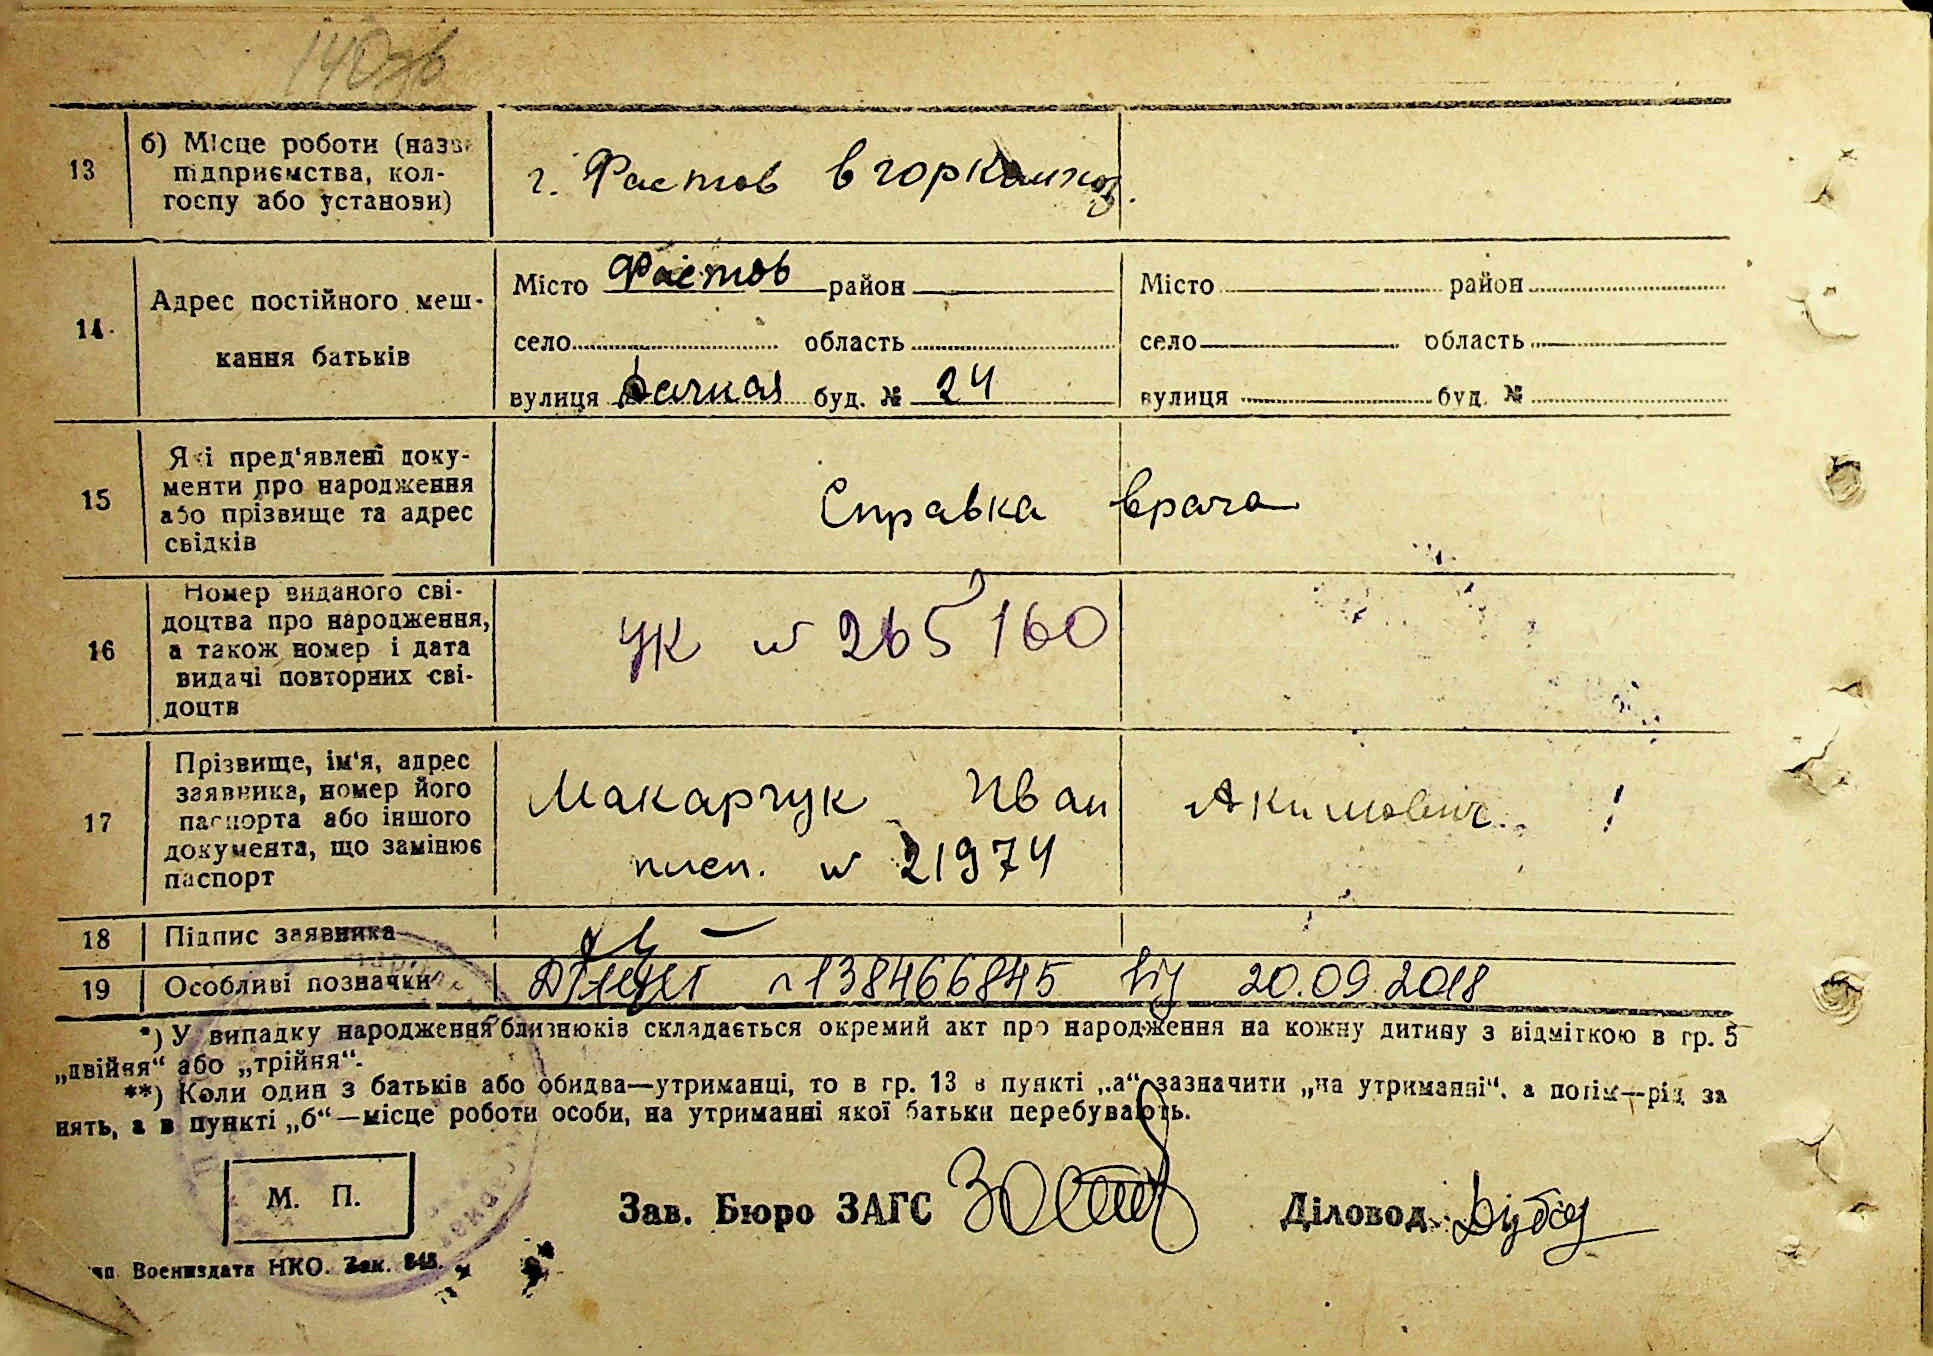 140зв
13
б) Місце роботи (назва
підприємства, кол-
госпу або установи)
г. Фастов в горкомхоз.
14
Адрес постійного меш-
кання батьків
Місто Фастов район
село область
вулиця Дачная буд. № 24
Місто район
село область
вулиця буд. №
15
Які пред'явлені доку-
менти про народження
або прізвище та адрес
свідків
Справка врача
16
Номер виданого сві-
доцтва про народження,
а також номер і дата
видачі повторних сві-
доцтв
УК № 265160
17
Прізвище, ім'я, адрес
заявника, номер його
паспорта або іншого
документа, що замінює
паспорт
Макарчук Иван Акимович
пасп. № 21974
18
Підпис заявника
19
Особливі позначки
№ 138466845 від 20.09.2018
*) У випадку народження близнюків складається окремий акт про народження на кожну дитину з відміткою в гр. 5
„двійня“ або „трійня“.
**) Коли один з батьків або обидва—утриманці, то в гр. 13 в пункті „а“ зазначити „на утриманні“, а потім—рід за
нять, а в пункті „б“—місце роботи особи, на утриманні якої батьки перебувають.
М. П.
Зав. Бюро ЗАГС
Діловод
Воениздата НКО. Зак. 848.